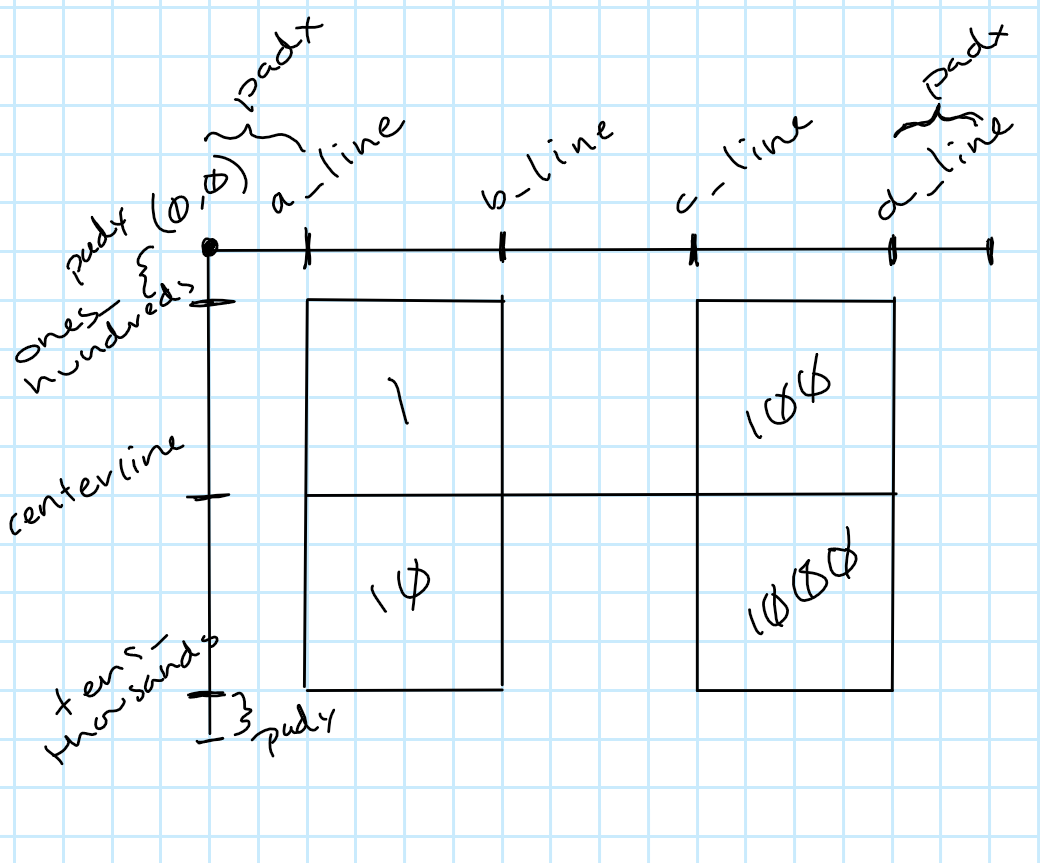 padx
padx
a_line
b_line
c_line
d_line
(0,0)
pady
ones_
hundreds
1
100
centerline
10
1000
tens_
thousands
pady